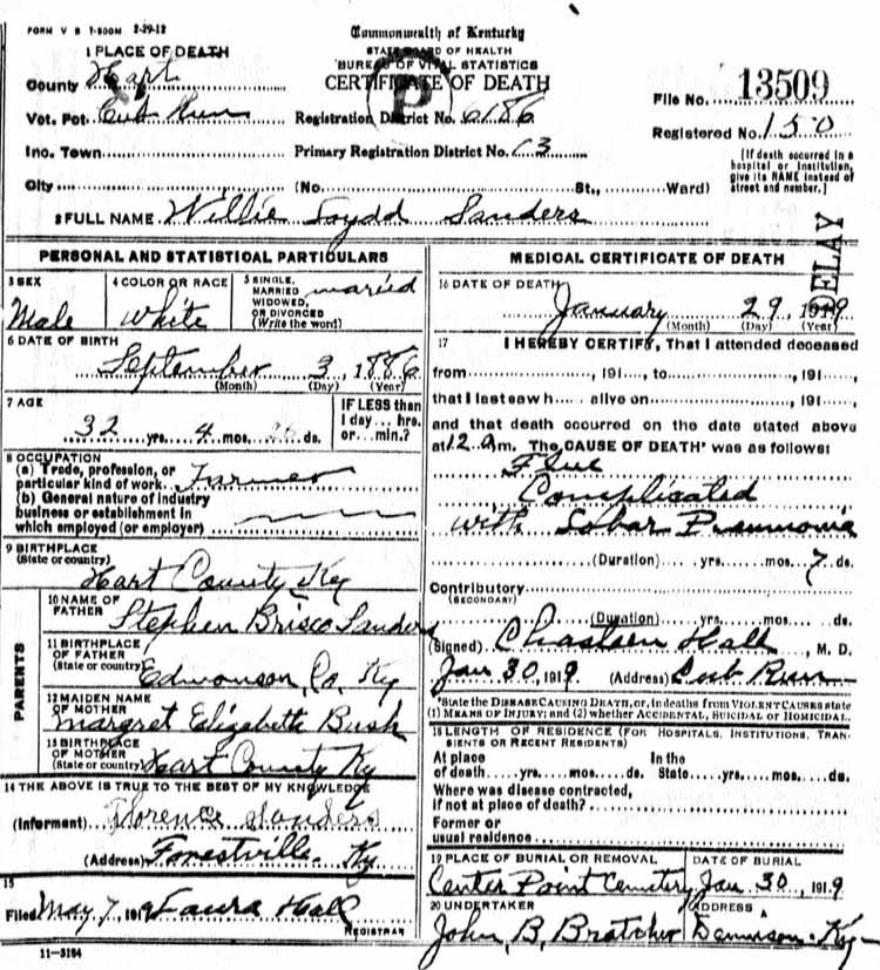 FORM V S 1-500M 2-29-12
Commonwealth of Kentucky
STATE BOARD OF HEALTH
BUREAU OF VITAL STATISTICS
CERTIFICATE OF DEATH
P
1 PLACE OF DEATH
County Hart
Vot. Pct. Cub Run
Registration District No. 6186
Inc. Town
Primary Registration District No.
City (No. St., Ward)
File No. 13509
Registered No. 150
[If death occurred in a hospital or institution, give its NAME instead of street and number.]
2 FULL NAME Willie Sanders
DELAY
PERSONAL AND STATISTICAL PARTICULARS
3 SEX
Male
4 COLOR OR RACE
White
5 SINGLE, MARRIED WIDOWED, OR DIVORCED (Write the word)
married
6 DATE OF BIRTH
September 3, 1886
(Month) (Day) (Year)
7 AGE
32 yrs. 4 mos. 26 ds.
IF LESS than 1 day... hrs. or... min.?
8 OCCUPATION
(a) Trade, profession, or
particular kind of work Farmer
(b) General nature of industry
business or establishment in
which employed (or employer)
9 BIRTHPLACE
(State or country)
Hart County Ky
PARENTS
10 NAME OF FATHER
Stephen Brisco Sanders
11 BIRTHPLACE OF FATHER
(State or country)
Edmonson, Co, Ky
12 MAIDEN NAME OF MOTHER
Margret Elizabeth Bush
13 BIRTHPLACE OF MOTHER
(State or country) Hart County Ky
14 THE ABOVE IS TRUE TO THE BEST OF MY KNOWLEDGE
(Informant) Florence Sanders
(Address) Forestville. Ky
15
Filed May 7, 1919 Laura Hall
REGISTRAR
11-5184
MEDICAL CERTIFICATE OF DEATH
16 DATE OF DEATH
January 29, 1919
(Month) (Day) (Year)
17 I HEREBY CERTIFY, That I attended deceased
from , 191 , to , 191 ,
that I last saw h alive on , 191 ,
and that death occurred on the date stated above
at 12 am. The CAUSE OF DEATH* was as follows:
Flue
Complicated
with Lobar Pneumonia
(Duration) yrs. mos. 7 ds.
Contributory
(SECONDARY)
(Duration) yrs. mos. ds.
(Signed) Hall, M. D.
Jan 30, 1919 (Address) Cub Run
*State the DISEASE CAUSING DEATH, or, in deaths from VIOLENT CAUSES state
(1) MEANS OF INJURY; and (2) whether ACCIDENTAL, SUICIDAL or HOMICIDAL.
18 LENGTH OF RESIDENCE (FOR HOSPITALS, INSTITUTIONS, TRANSIENTS OR RECENT RESIDENTS)
At place In the
of death yrs. mos. ds. State yrs. mos. ds.
Where was disease contracted,
if not at place of death?
Former or
usual residence
19 PLACE OF BURIAL OR REMOVAL
Center Point Cemetery
DATE OF BURIAL
Jan 30, 1919
20 UNDERTAKER
John, B, Bratcher
ADDRESS
Ky